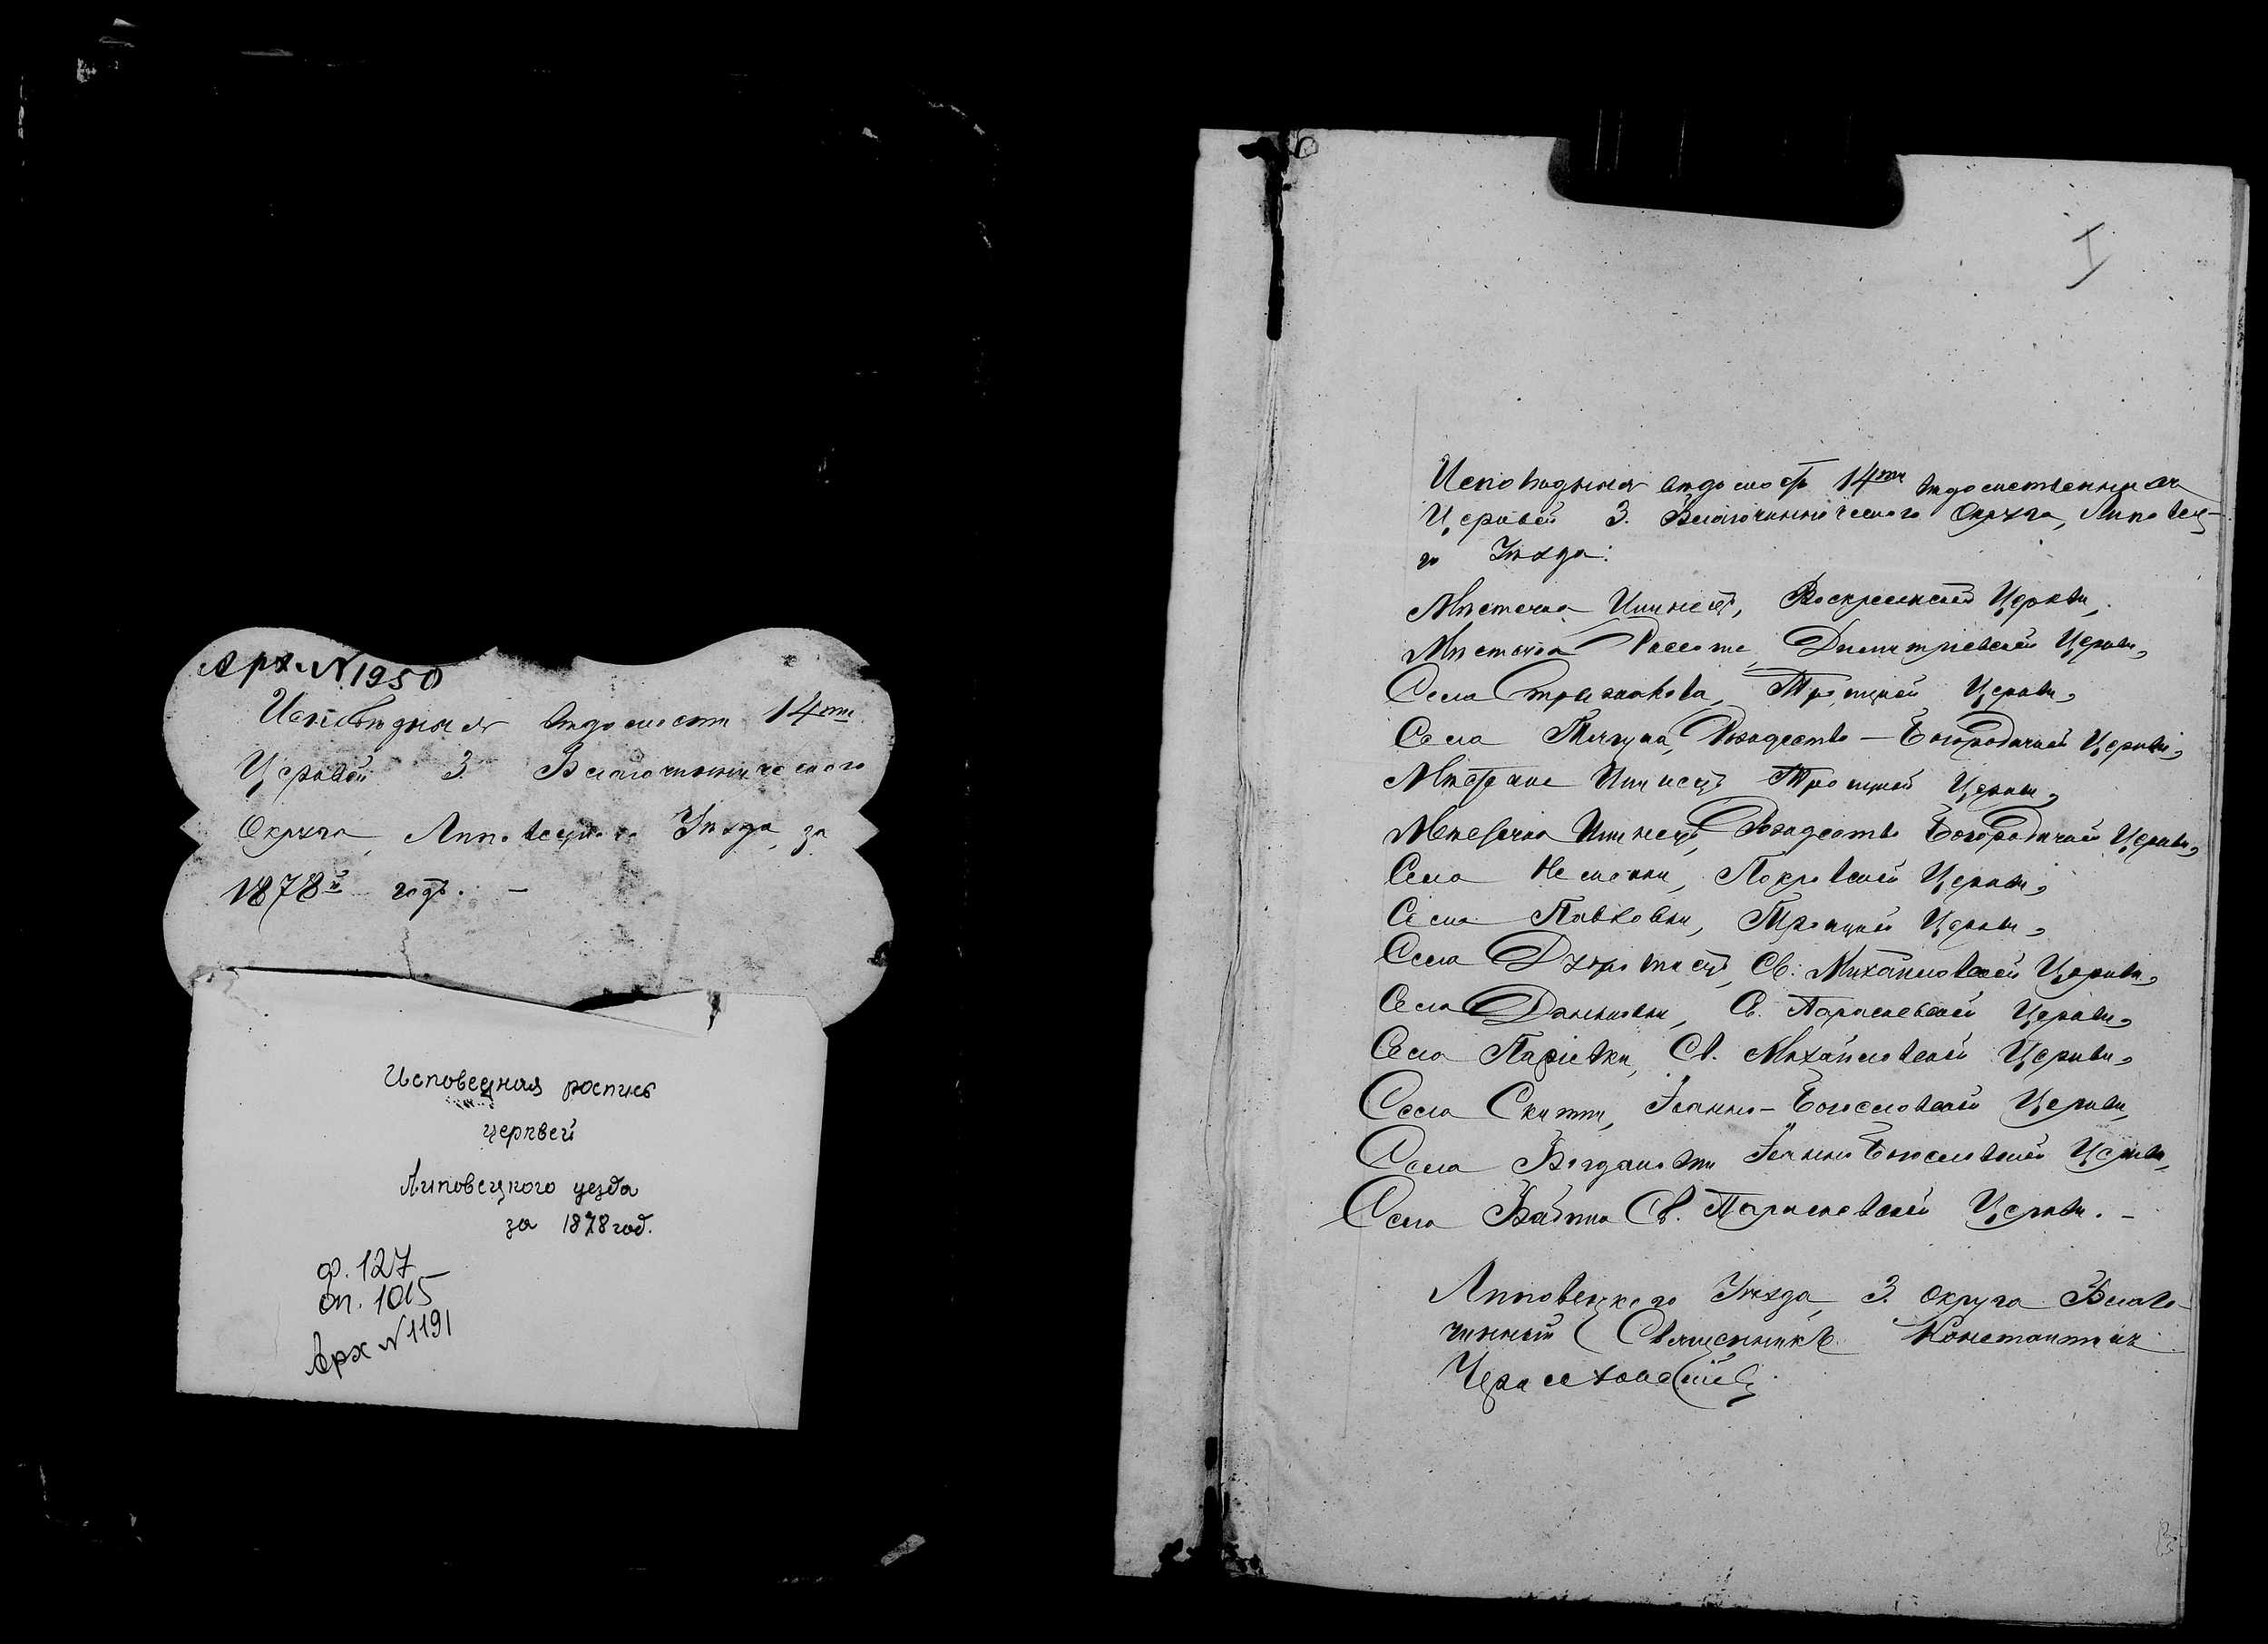 Арх. N 1950
Исповѣдныя вѣдомости 14ти
Церквей 3. Благочинническаго
Округа, Липовецкаго Уѣзда, за
1878й годъ. —
Исповедная роспись
церквей
Липовецкого уезда
за 1878 год.
ф. 127
оп. 1015
Арх N 1191
I
Исповѣдныя вѣдомости 14ти вѣдомственныхъ
Церквей 3. Благочинническаго Округа, Липовец-
го Уѣзда:
Мѣстечка Илинецъ, Воскресенской Церкви,
Мѣстечка Россоше, Димитріевской Церкви,
Села Троицкой Церкви,
Села Тягуна, Рождество-Богородичной Церкви,
Мѣстечка Илинецъ Троицкой Церкви,
Мѣстечка Илинецъ, Рождество Богородичной Церкви,
Села Неменки, Покровской Церкви,
Села Павловки, Троицкой Церкви,
Села Св. Михайловской Церкви,
Села Даньковки, Св. Параскевской Церкви,
Села Паріевки, Св. Михайловской Церкви,
Села Скитки, Іоанно-Богословской Церкви,
Села Богдановки Іоанно Богословской Церкви,
Села Бабина Св. Параскевской Церкви. —
Липовецкаго Уѣзда, 3. округа Благо-
чинный Священникъ Константинъ